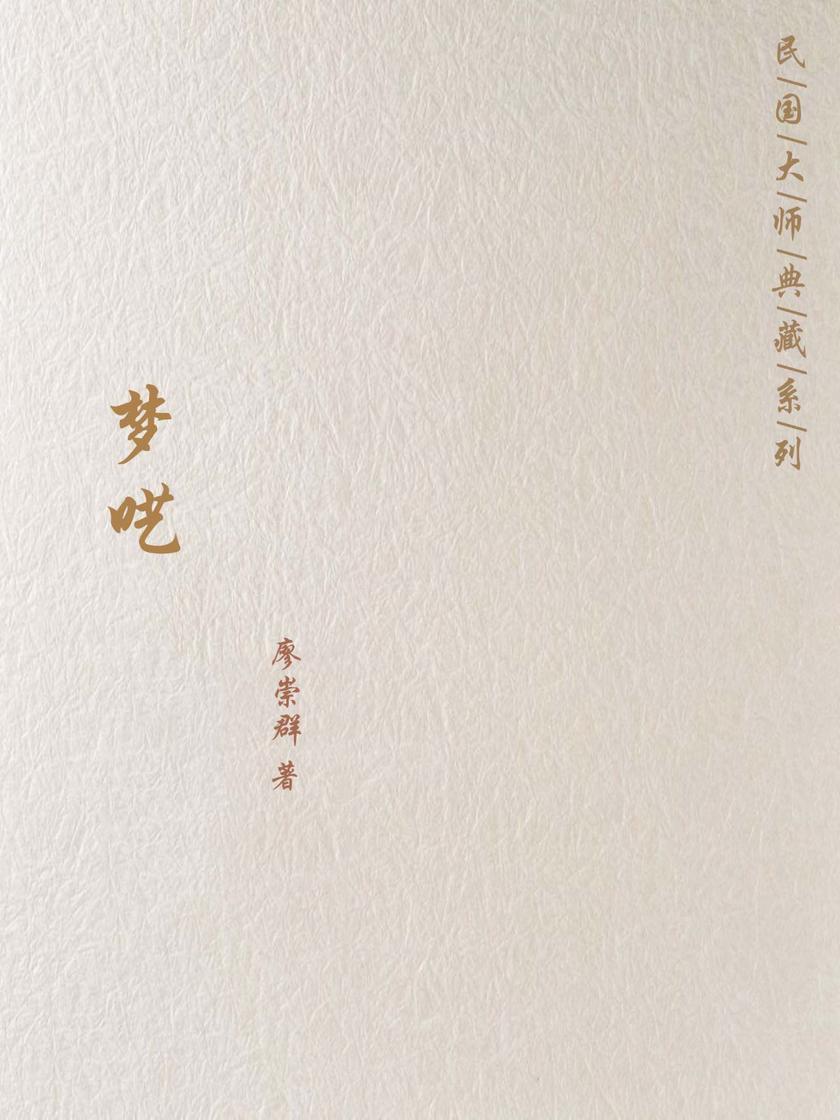 民|国|大|师|典|藏|系|列
梦呓
廖崇群 著